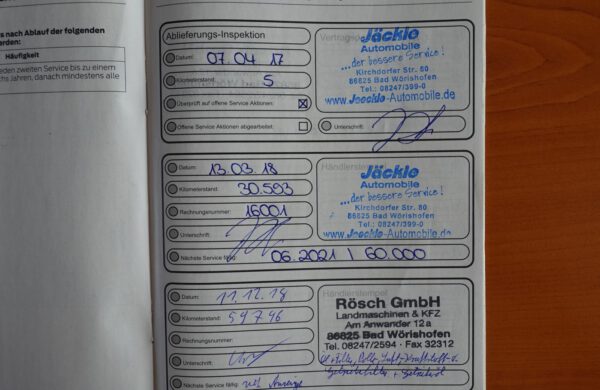 s nach Ablauf der folgenden
erden:
Häufigkeit
eden zweiten Service bis zu einem
hs Jahren, danach mindestens alle
Ablieferungs-Inspektion
Datum: 07.04 17
Kilometerstand: 5
Überprüft auf offene Service Aktionen:
Offene Service Aktionen abgearbeitet:
Jäckle
Automobile
...der bessere Service!
Kirchdorfer Str. 80
86825 Bad Wörishofen
Tel.: 08247/399-0
www.Jaeckle-Automobile.de
Unterschrift:
Datum: 13.03.18
Kilometerstand: 30.593
Rechnungsnummer: 16001
Unterschrift:
Nächste Service fällig: 06.2021 | 60.000
Händlerstempel
Jäckle
Automobile
...der bessere Service!
Kirchdorfer Str. 80
86825 Bad Wörishofen
Tel.: 08247/399-0
www.Jaeckle-Automobile.de
Datum: 11.12.18
Kilometerstand: 59796
Rechnungsnummer:
Unterschrift:
Nächste Service fällig: Anzeige
Händlerstempel
Rösch GmbH
Landmaschinen & KFZ
Am Anwander 12a
86825 Bad Wörishofen
Tel. 08247/2594 · Fax 32312